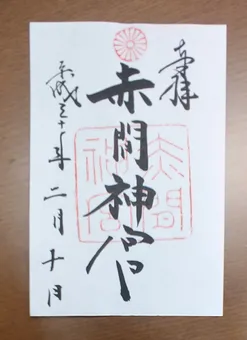 奉拝
赤間神宮
平成三十年二月十日
赤間神宮